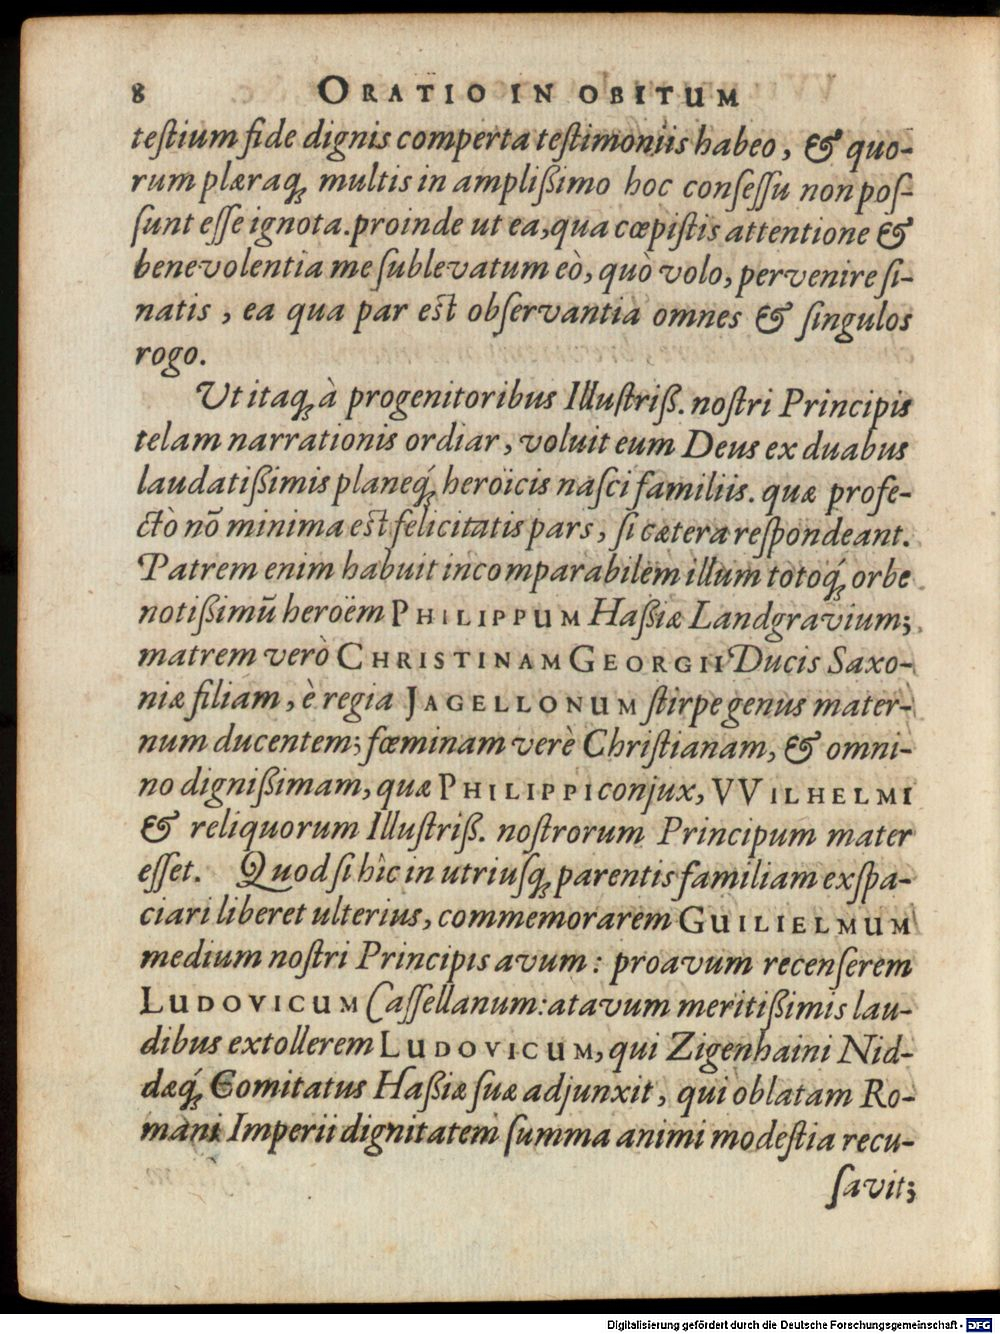 8 ORATIO IN OBITUM
teſtium fide dignis comperta teſtimoniis habeo, & quo-
rum plæraq; multis in ampliſsimo hoc conſeſſu non poſ-
ſunt eſſe ignota. proinde ut ea, qua cœpiſtis attentione &
benevolentia me ſublevatum eò, quò volo, pervenire ſi-
natis, ea qua par eſt obſervantia omnes & ſingulos
rogo.
Ut itaq; à progenitoribus Illuſtriß. noſtri Principis
telam narrationis ordiar, voluit eum Deus ex duabus
laudatißimis planeq́; heroïcis naſci familiis. quæ profe-
ctò nō minima eſt felicitatis pars, ſi cætera reſpondeant.
Patrem enim habuit incomparabilem illum totoq́; orbe
notißimū heroëm PHILIPPUM Haßiæ Landgravium;
matrem verò CHRISTINAM GEORGII Ducis Saxo-
niæ filiam, è regia JAGELLONUM ſtirpe genus mater-
num ducentem; fœminam verè Chriſtianam, & omni-
no dignißimam, quæ PHILIPPI conjux, VVILHELMI
& reliquorum Illuſtriß. noſtrorum Principum mater
eſſet. Quod ſi hîc in utriuſq; parentis familiam exſpa-
ciari liberet ulterius, commemorarem GUILIELMUM
medium noſtri Principis avum: proavum recenſerem
LUDOVICUM Caſſellanum: atavum meritißimis lau-
dibus extollerem LUDOVICUM, qui Zigenhaini Nid-
dæq́; Comitatus Haßiæ ſuæ adjunxit, qui oblatam Ro-
mani Imperii dignitatem ſumma animi modeſtia recu-
ſavit;
Digitalisierung gefördert durch die Deutsche Forschungsgemeinschaft - DFG